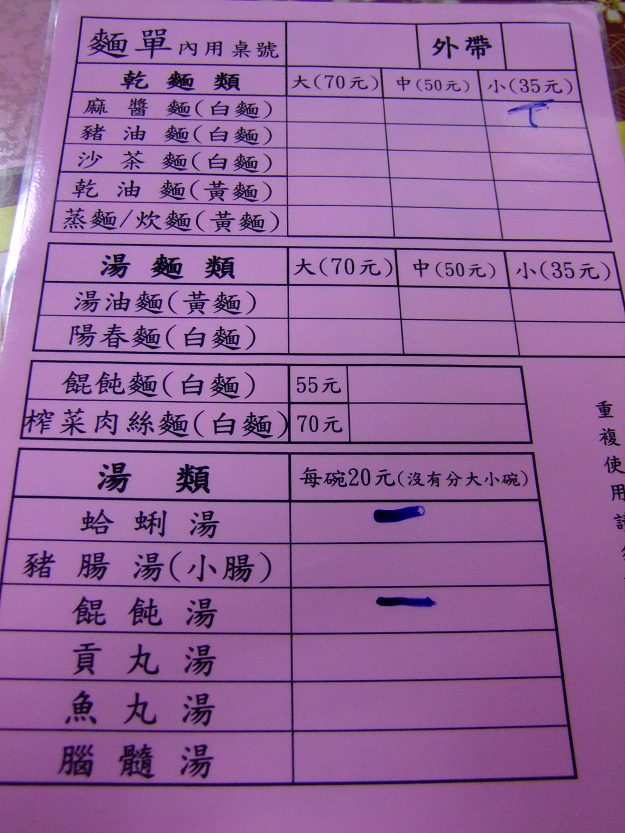 麵單 內用桌號 外帶
乾麵類 大(70元) 中(50元) 小(35元)
麻醬麵(白麵)
豬油麵(白麵)
沙茶麵(白麵)
乾油麵(黃麵)
蒸麵/炊麵(黃麵)
湯麵類 大(70元) 中(50元) 小(35元)
湯油麵(黃麵)
陽春麵(白麵)
餛飩麵(白麵) 55元
榨菜肉絲麵(白麵) 70元
湯類 每碗20元(沒有分大小碗)
蛤蜊湯
豬腸湯(小腸)
餛飩湯
貢丸湯
魚丸湯
腦髓湯
重複使用請